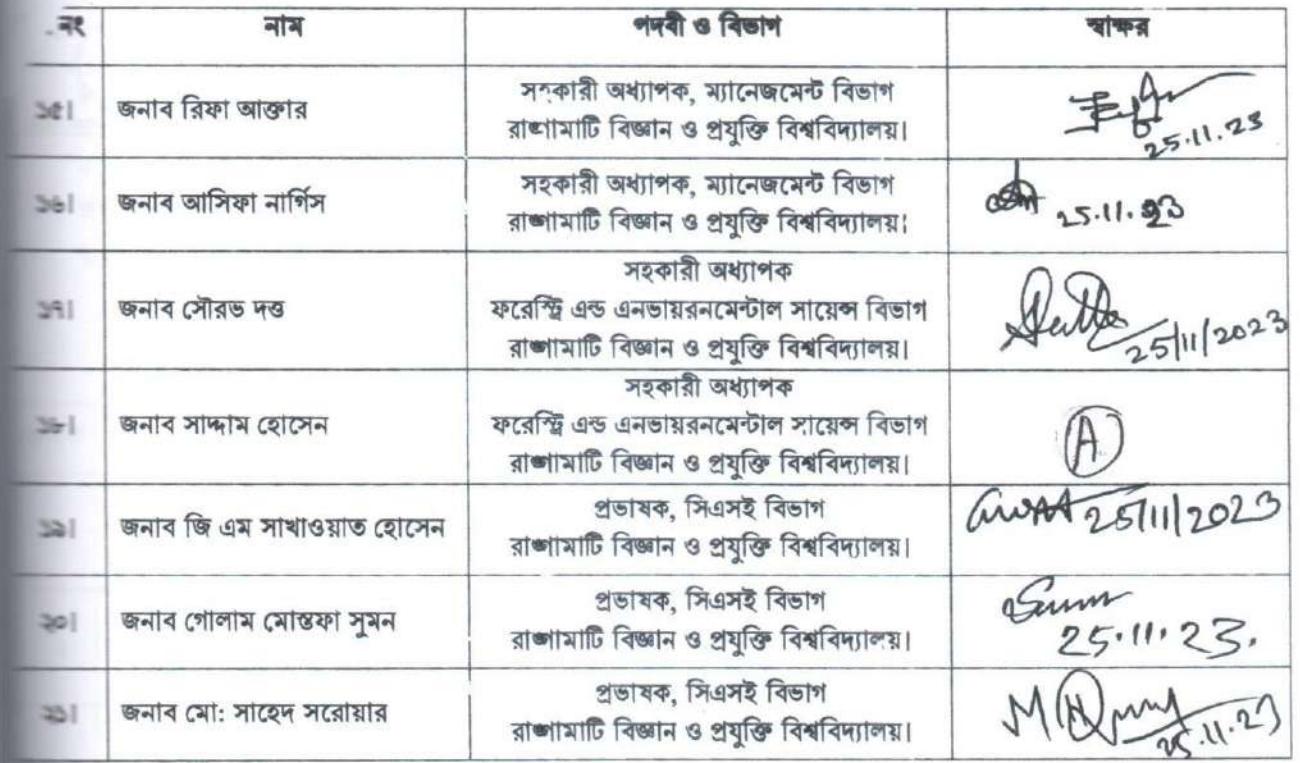 . নং নাম পদবী ও বিভাগ স্বাক্ষর
১৫। জনাব রিফা আক্তার
সহকারী অধ্যাপক, ম্যানেজমেন্ট বিভাগ
রাঙ্গামাটি বিজ্ঞান ও প্রযুক্তি বিশ্ববিদ্যালয়।
25.11.23
১৬। জনাব আসিফা নার্গিস
সহকারী অধ্যাপক, ম্যানেজমেন্ট বিভাগ
রাঙ্গামাটি বিজ্ঞান ও প্রযুক্তি বিশ্ববিদ্যালয়।
25.11.23
১৭। জনাব সৌরভ দত্ত
সহকারী অধ্যাপক
ফরেস্ট্রি এন্ড এনভায়রনমেন্টাল সায়েন্স বিভাগ
রাঙ্গামাটি বিজ্ঞান ও প্রযুক্তি বিশ্ববিদ্যালয়।
25/11/2023
১৮। জনাব সাদ্দাম হোসেন
সহকারী অধ্যাপক
ফরেস্ট্রি এন্ড এনভায়রনমেন্টাল সায়েন্স বিভাগ
রাঙ্গামাটি বিজ্ঞান ও প্রযুক্তি বিশ্ববিদ্যালয়।
A
১৯। জনাব জি এম সাখাওয়াত হোসেন
প্রভাষক, সিএসই বিভাগ
রাঙ্গামাটি বিজ্ঞান ও প্রযুক্তি বিশ্ববিদ্যালয়।
25/11/2023
২০। জনাব গোলাম মোস্তফা সুমন
প্রভাষক, সিএসই বিভাগ
রাঙ্গামাটি বিজ্ঞান ও প্রযুক্তি বিশ্ববিদ্যালয়।
25.11.23.
২১। জনাব মো: সাহেদ সরোয়ার
প্রভাষক, সিএসই বিভাগ
রাঙ্গামাটি বিজ্ঞান ও প্রযুক্তি বিশ্ববিদ্যালয়।
25.11.23